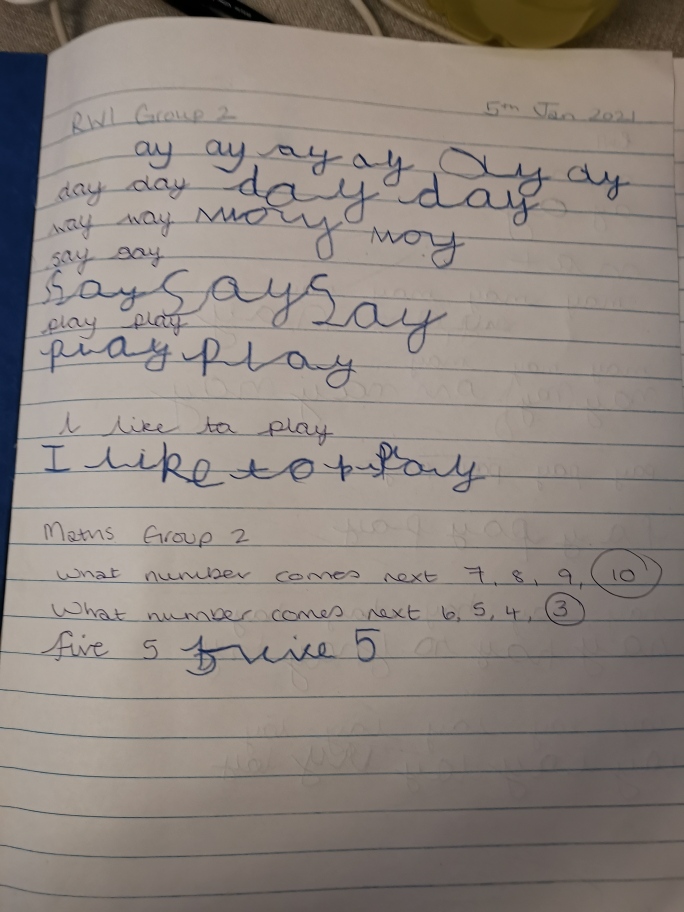 RWI Group 2 5th Jan 2021
ay ay ay ay ay ay
day day day day
way way way way
say say
say say say
play play
play play
I like to play
I like to play
Maths Group 2
What number comes next 7, 8, 9, 10
What number comes next 6, 5, 4, 3
five 5 five 5